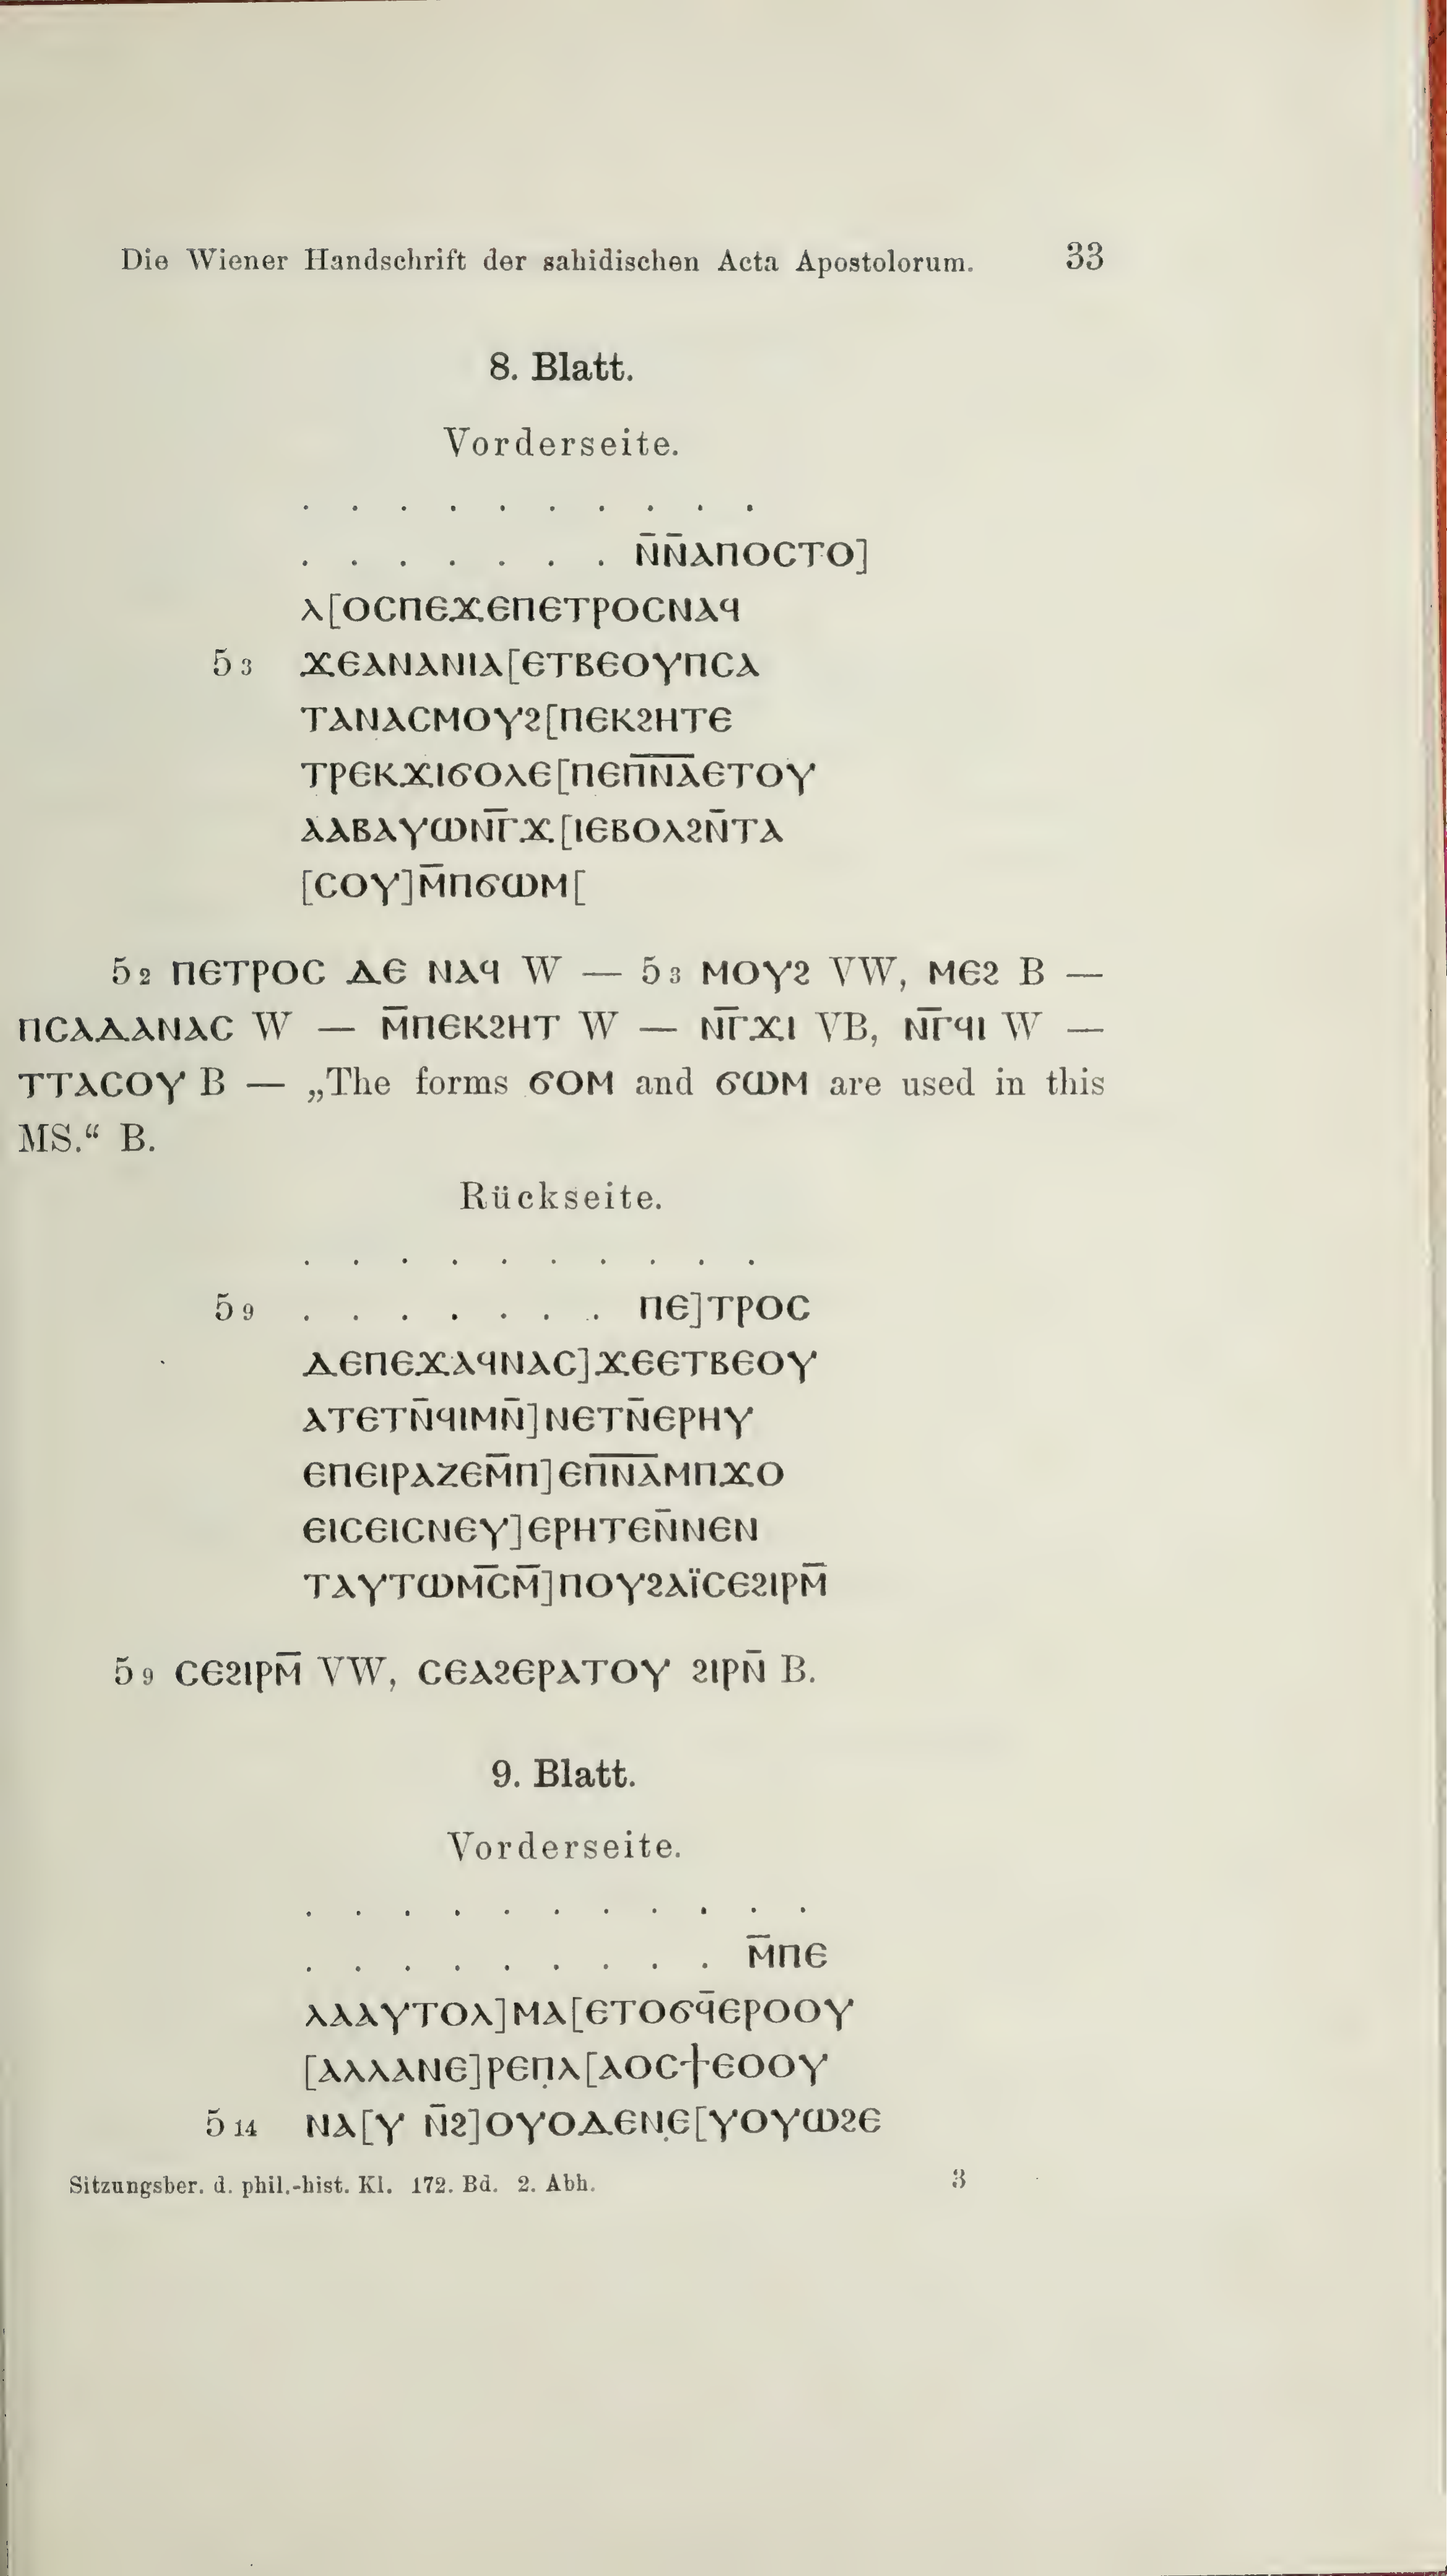 Die Wiener Handschrift der sahidischen Acta Apostolorum. 33
8. Blatt.
Vorderseite.
. . . . . . . . . .
. . . . . . . ⲛ̄ⲛ̄ⲁⲡⲟⲥⲧⲟ]
ⲗ[ⲟⲥⲡⲉϫⲉⲡⲉⲧⲣⲟⲥⲛⲁϥ
5 3 ϫⲉⲁⲛⲁⲛⲓⲁ[ⲉⲧⲃⲉⲟⲩⲡⲥⲁ
ⲧⲁⲛⲁⲥⲙⲟⲩϩ[ⲡⲉⲕϩⲏⲧⲉ
ⲧⲣⲉⲕϫⲓϭⲟⲗⲉ[ⲡⲉⲡ̅ⲛ̅ⲁ̅ⲉⲧⲟⲩ
ⲁⲁⲃⲁⲩⲱⲛ̅ⲅ̅ϫ[ⲓⲉⲃⲟⲗϩⲛ̄ⲧⲁ
[ⲥⲟⲩ]ⲙ̄ⲡϭⲱⲙ[
5 2 ⲡⲉⲧⲣⲟⲥ ⲇⲉ ⲛⲁϥ W — 5 3 ⲙⲟⲩϩ VW, ⲙⲉϩ B —
ⲡⲥⲁⲇⲁⲛⲁⲥ W — ⲙ̄ⲡⲉⲕϩⲏⲧ W — ⲛ̅ⲅ̅ϫⲓ VB, ⲛ̅ⲅ̅ϥⲓ W —
ⲧⲧⲁⲥⲟⲩ B — „The forms ϭⲟⲙ and ϭⲱⲙ are used in this
MS.“ B.
Rückseite.
. . . . . . . . . .
5 9 . . . . . . . ⲡⲉ]ⲧⲣⲟⲥ
ⲇⲉⲡⲉϫⲁϥⲛⲁⲥ]ϫⲉⲉⲧⲃⲉⲟⲩ
ⲁⲧⲉⲧⲛ̄ϥⲓⲙⲛ̄]ⲛⲉⲧⲛ̄ⲉⲣⲏⲩ
ⲉⲡⲉⲓⲣⲁⲍⲉⲙ̄ⲡ]ⲉⲡ̅ⲛ̅ⲁ̅ⲙⲡϫⲟ
ⲉⲓⲥⲉⲓⲥⲛⲉⲩ]ⲉⲣⲏⲧⲉⲛ̄ⲛⲉⲛ
ⲧⲁⲩⲧⲱⲙ̅ⲥ̅ⲙ̄]ⲡⲟⲩϩⲁⲓ̈ⲥⲉϩⲓⲣⲙ̄
5 9 ⲥⲉϩⲓⲣⲙ̄ VW, ⲥⲉⲁϩⲉⲣⲁⲧⲟⲩ ϩⲓⲣⲛ̄ B.
9. Blatt.
Vorderseite.
. . . . . . . . . . .
. . . . . . . . . ⲙ̄ⲡⲉ
ⲗⲁⲁⲩⲧⲟⲗ]ⲙⲁ[ⲉⲧⲟϭϥ̄ⲉⲣⲟⲟⲩ
[ⲁⲗⲗⲁⲛⲉ]ⲣⲉⲡ̣ⲗ[ⲁⲟⲥϯⲉⲟⲟⲩ
5 14 ⲛⲁ[ⲩ ⲛ̄ϩ]ⲟⲩⲟⲇⲉⲛ̣ⲉ[ⲩⲟⲩⲱϩⲉ
Sitzungsber. d. phil.-hist. Kl. 172. Bd. 2. Abh. 3